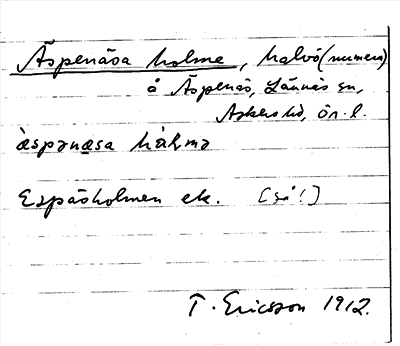 Äspenäsa holme, halvö (numera)
å Äspenäs, Lännäs sn,
Askers hd, Ör. l.
äspənasa hàlmə
Espåsholmen ek. [så!]
T. Ericsson 1912.